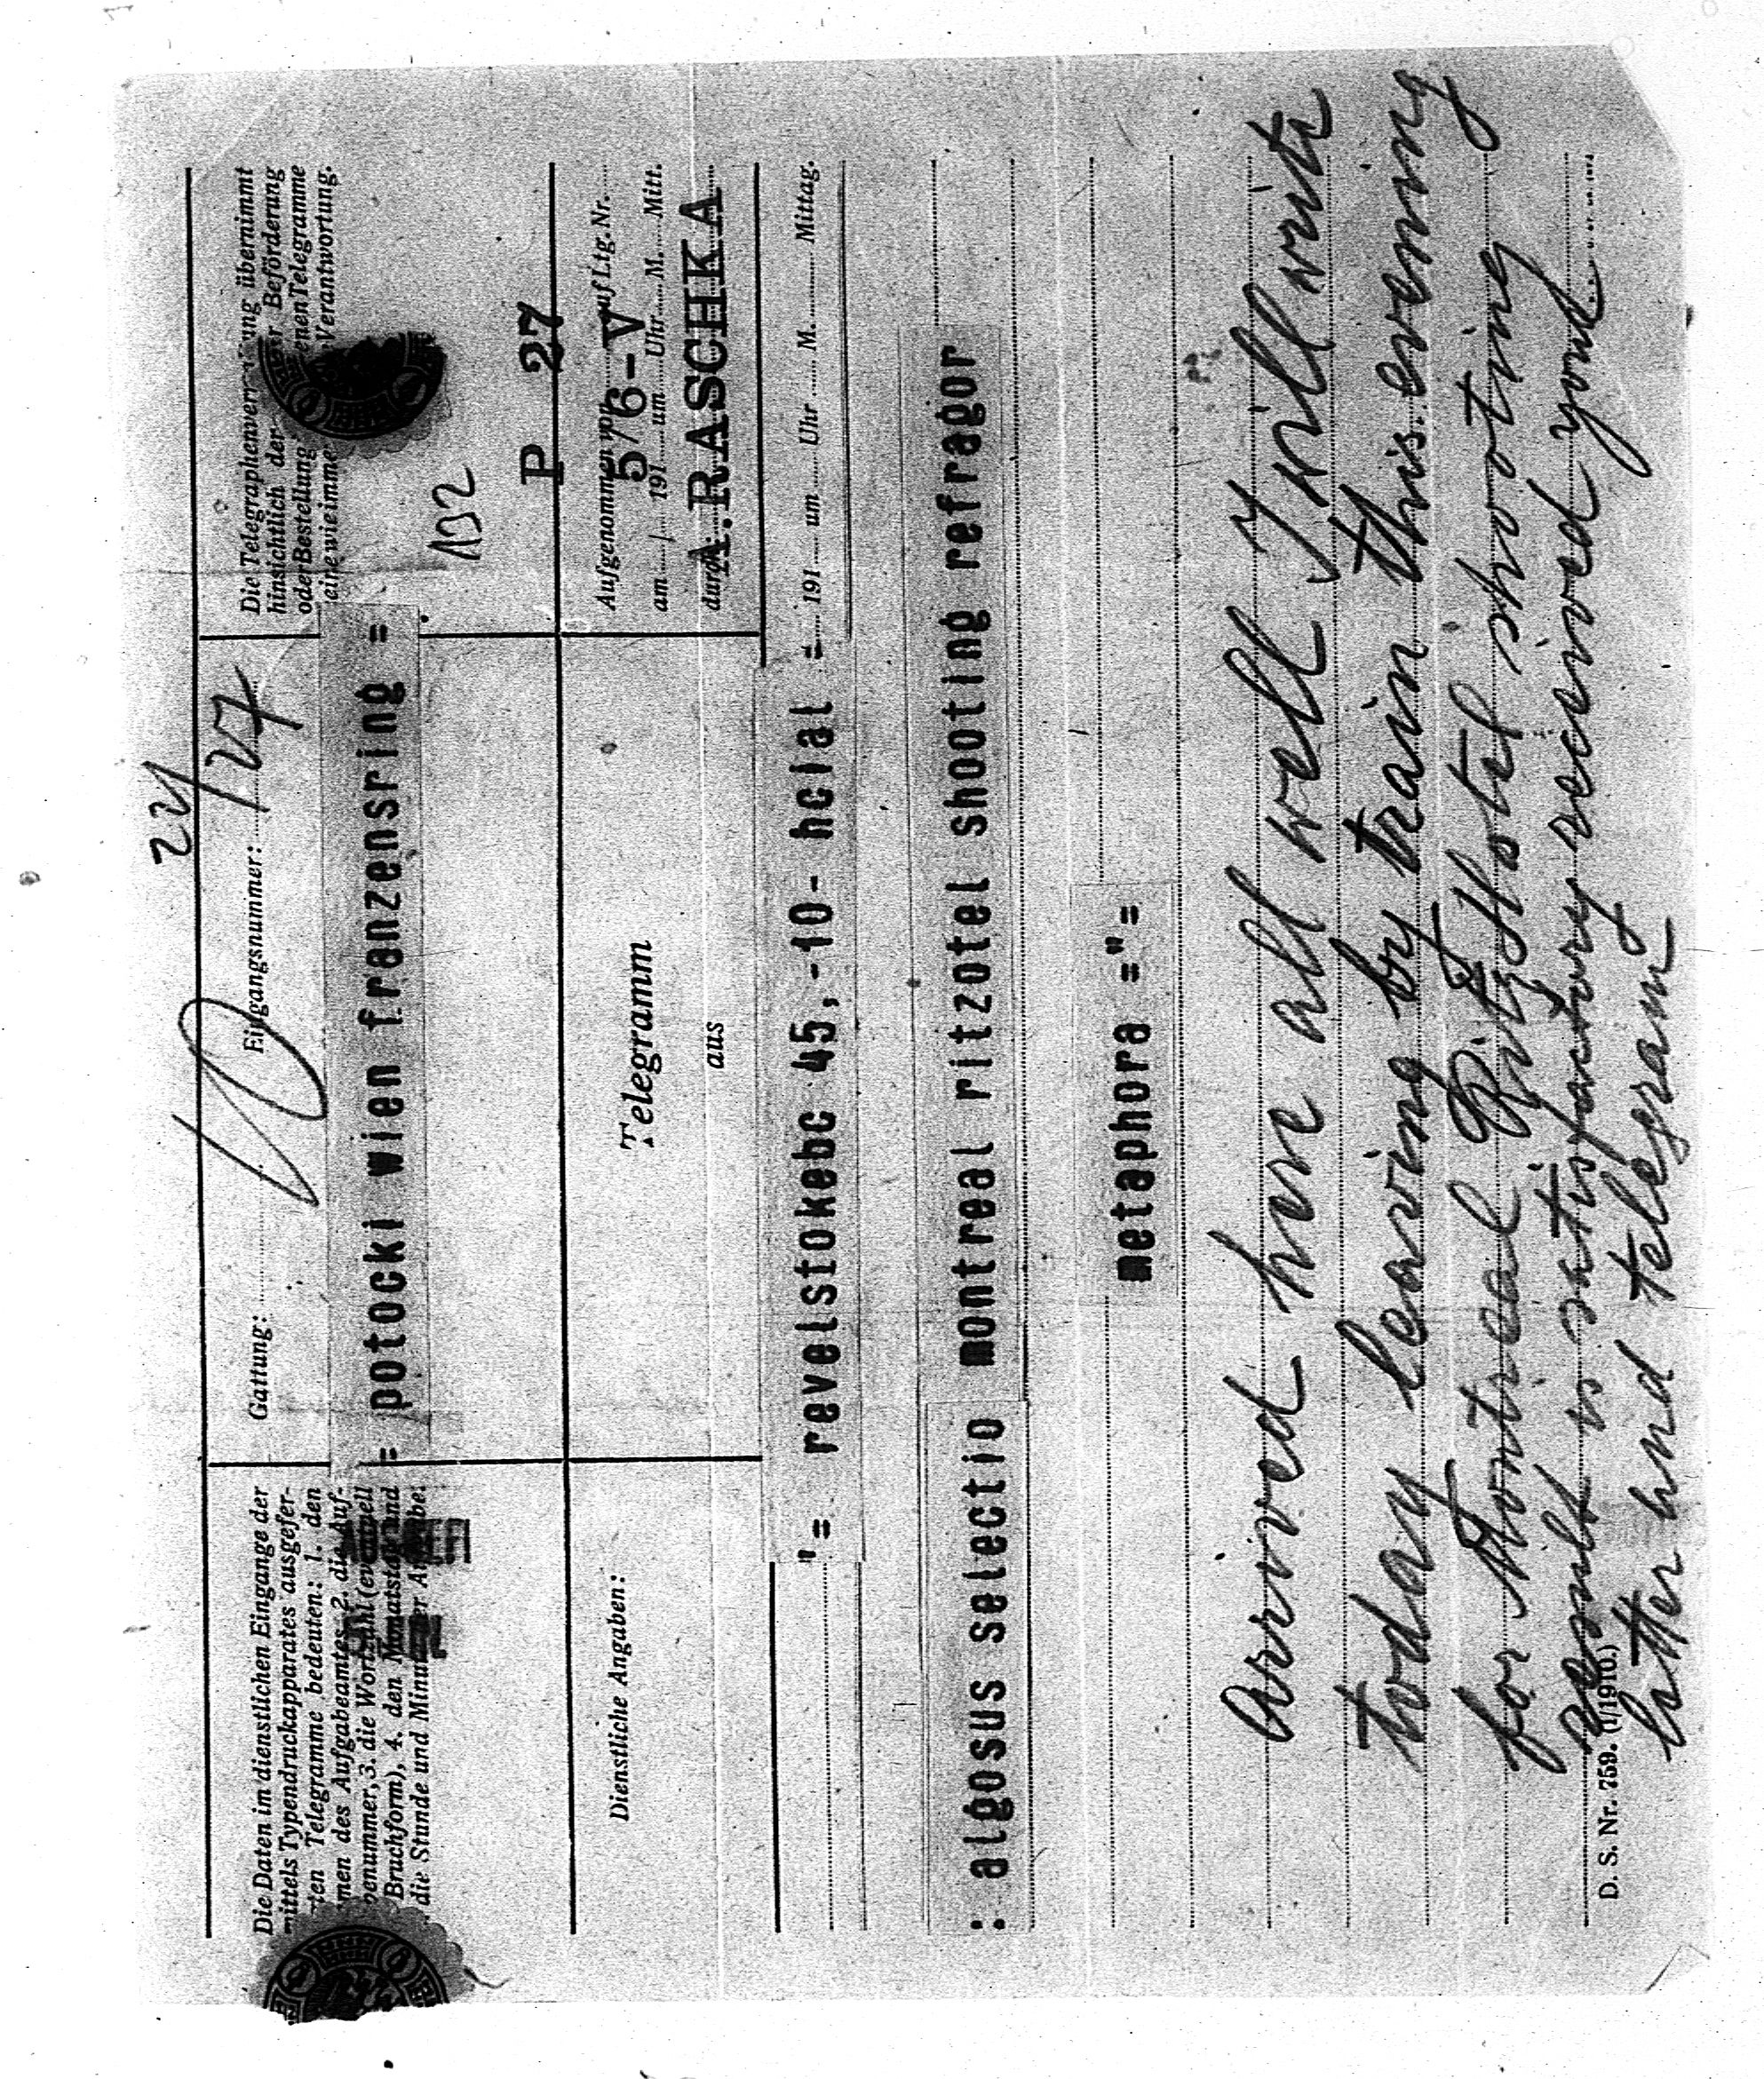 24
Die Daten im dienstlichen Eingange der
mittels Typendruckapparates ausgefer-
ten Telegramme bedeuten: 1. den
men des Aufgabeamtes, 2. die Auf-
benummer, 3. die Wortzahl (eventuell
Bruchform), 4. den Monatstag und
die Stunde und Minute der Aufgabe.
Gattung:
Eingangsnummer: 127
= potocki wien franzensring =
Die Telegraphenverwaltung übernimmt
hinsichtlich der Beförderung
oder Bestellung enen Telegramme
keine wie immer Verantwortung.
132
P 27
Dienstliche Angaben:
Telegramm
aus
Aufgenommen von auf Ltg. Nr.
5/6-V
am / 191 um Uhr M. Mitt.
durch
A. RASCHKA
"= revelstokebc 45,-10- hcial =
191 um Uhr M. Mittag.
: algosus selectio montreal ritzotel shooting refragor
metaphora ="=
Arrived here all well I will write
today leaving by train this evening
for Montreal Ritz Hotel shooting
result is satisfactory received your
letter and telegram
D. S. Nr. 759. (1/1910.)